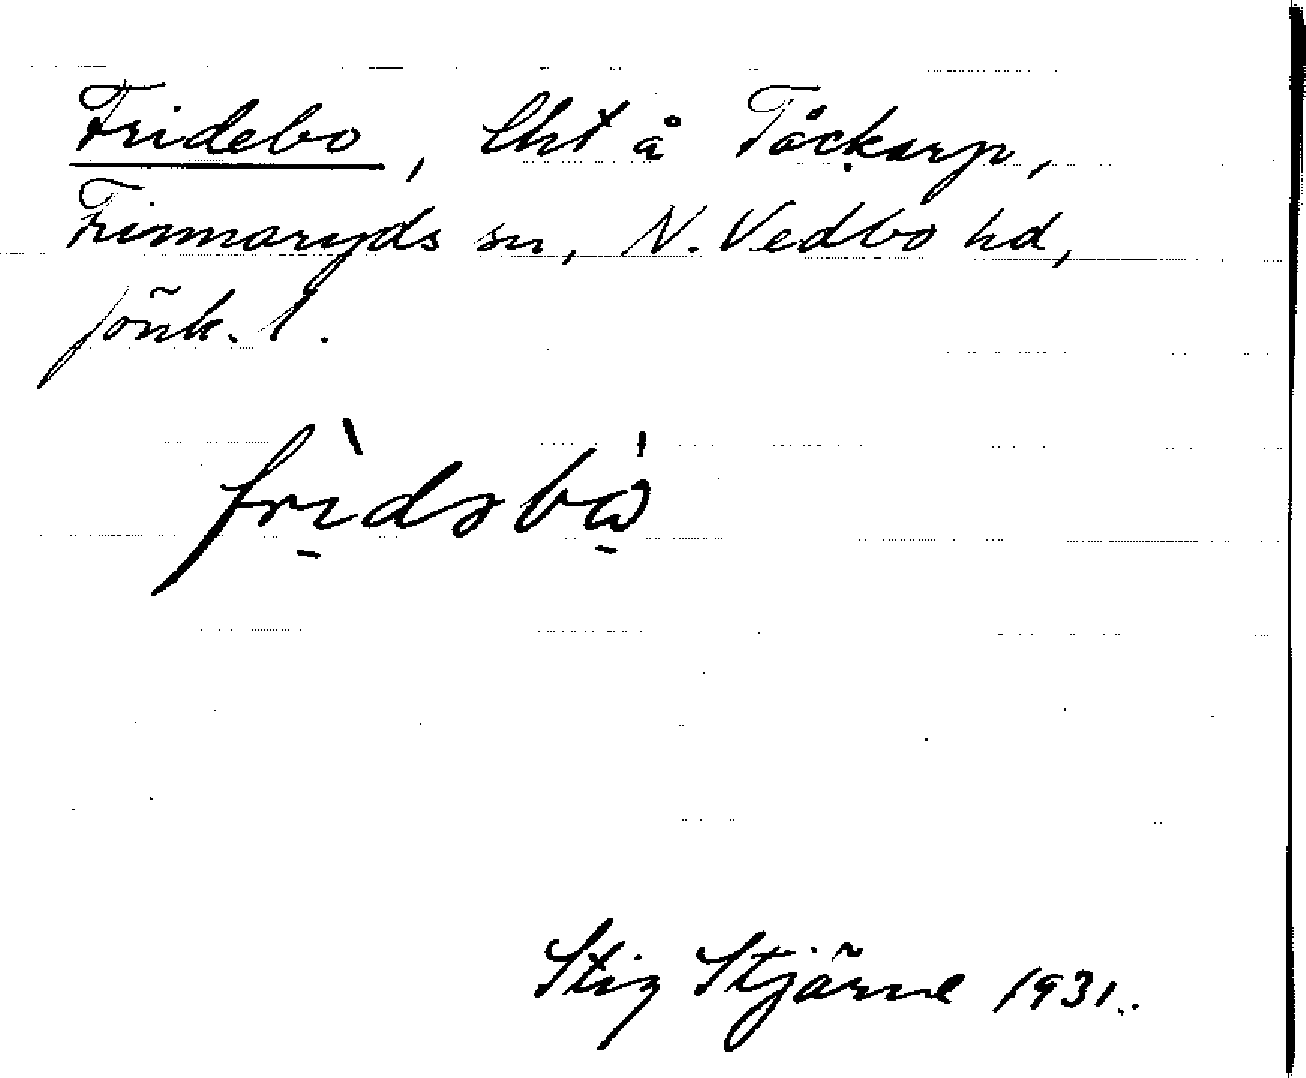 Fridebo, lht å Täckarp,
Finnaryds sn, N. Vedbo hd,
Jönk. l.
fridsbω
Stig Stjärne 1931.